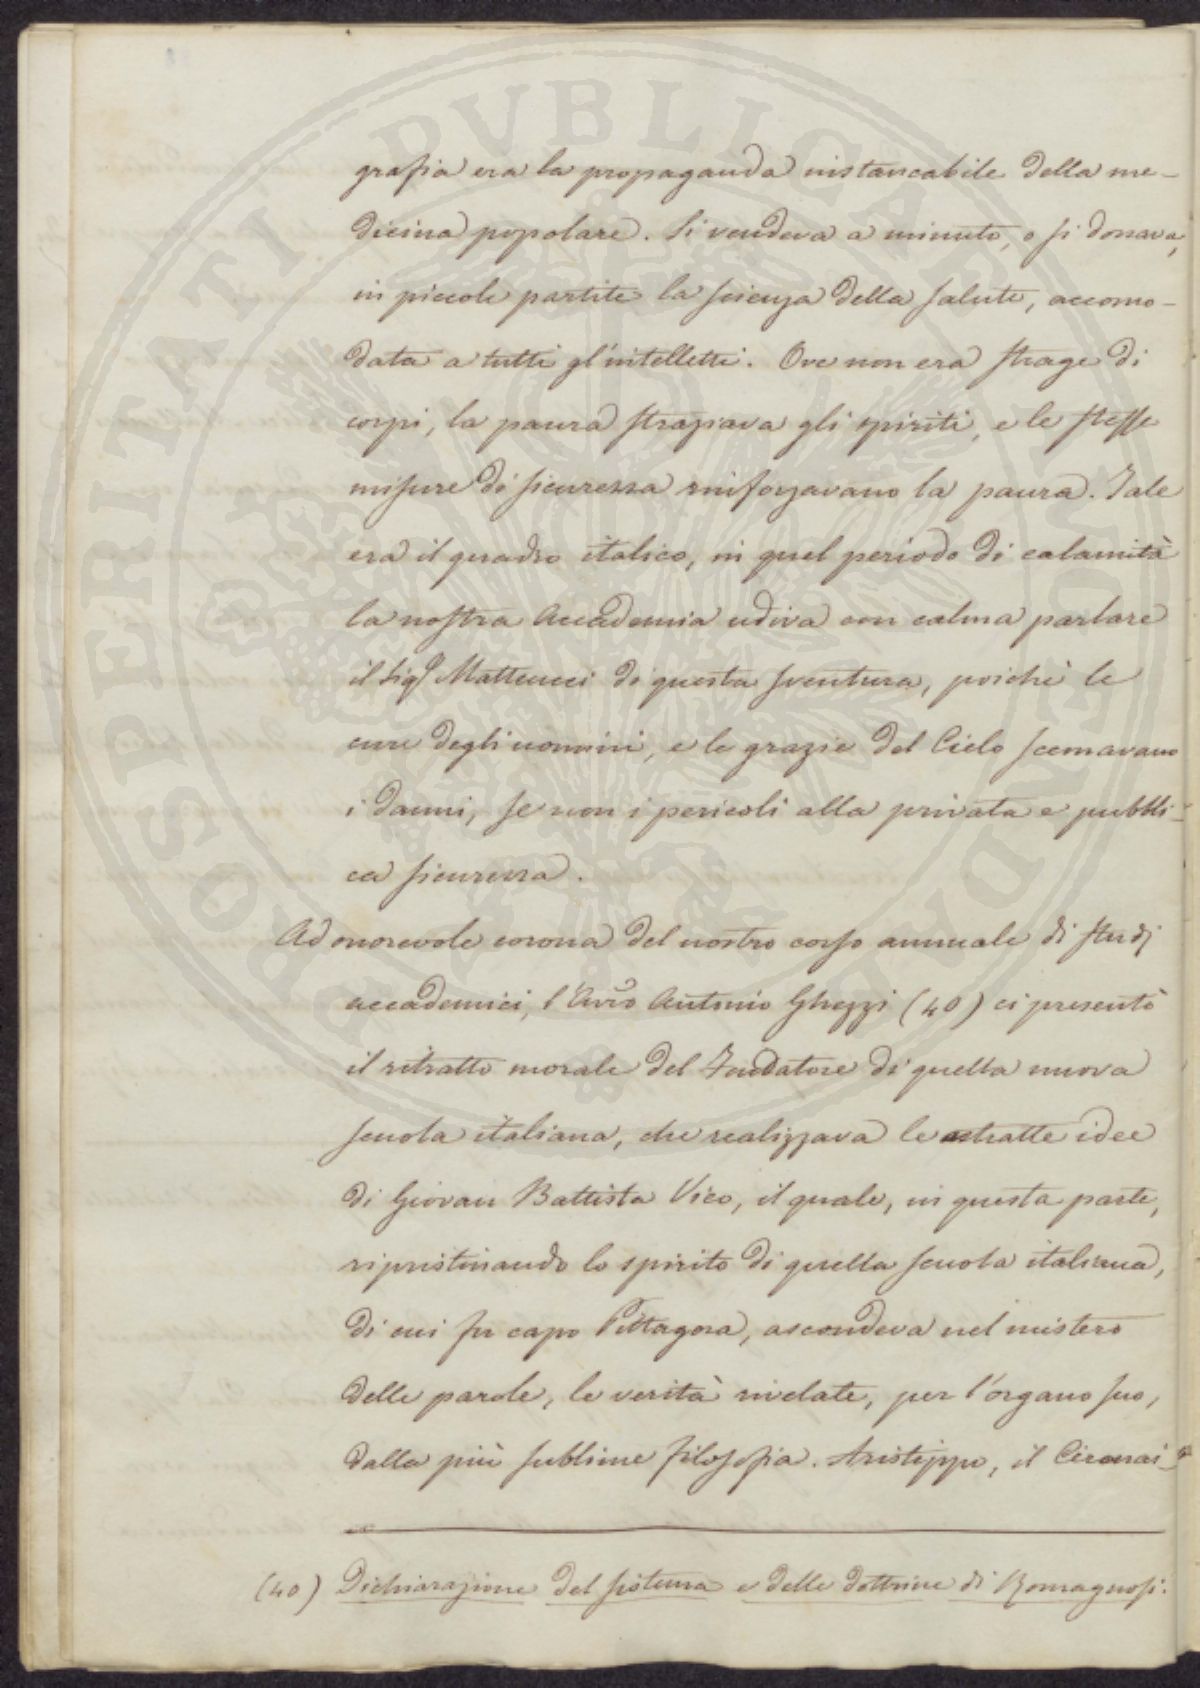 grafia era la propaganda instancabile della me-
dicina popolare. Si vendeva a minuto, o si donava,
in piccole partite la scienza della salute, accomo-
data a tutti gl'intelletti. Ove non era strage di
corpi, la paura straziava gli spiriti, e le stesse
misure di sicurezza rinforzavano la paura. Tale
era il quadro italico, in quel periodo di calamità
la nostra Accademia udiva con calma parlare
il Sigr Matteucci di questa sventura, poichè le
cure degli uomini, e le grazie del Cielo scemavano
i danni, se non i pericoli alla privata e pubbli-
ca sicurezza.
Ad onorevole corona del nostro corso annuale di studj
accademici, l'Avvo Antonio Ghezzi (40) ci presentò
il ritratto morale del Fondatore di quella nuova
scuola italiana, che realizzava le astratte idee
di Giovan Battista Vico, il quale, in questa parte,
ripristinando lo spirito di quella scuola italiana,
di cui fu capo Pittagora, ascondeva nel mistero
delle parole, le verità rivelate, per l'organo suo,
dalla più sublime filosofia. Aristippo, il Cirenai-
(40) Dichiarazione del sistema e delle dottrine di Romagnosi.
PROSPERITATI PUBLICAE AUGENDAE